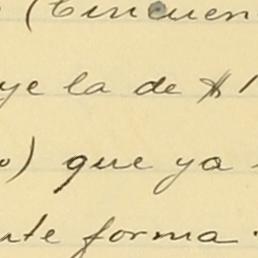 (Cincuen
ye la de $1
o) que ya
nte forma